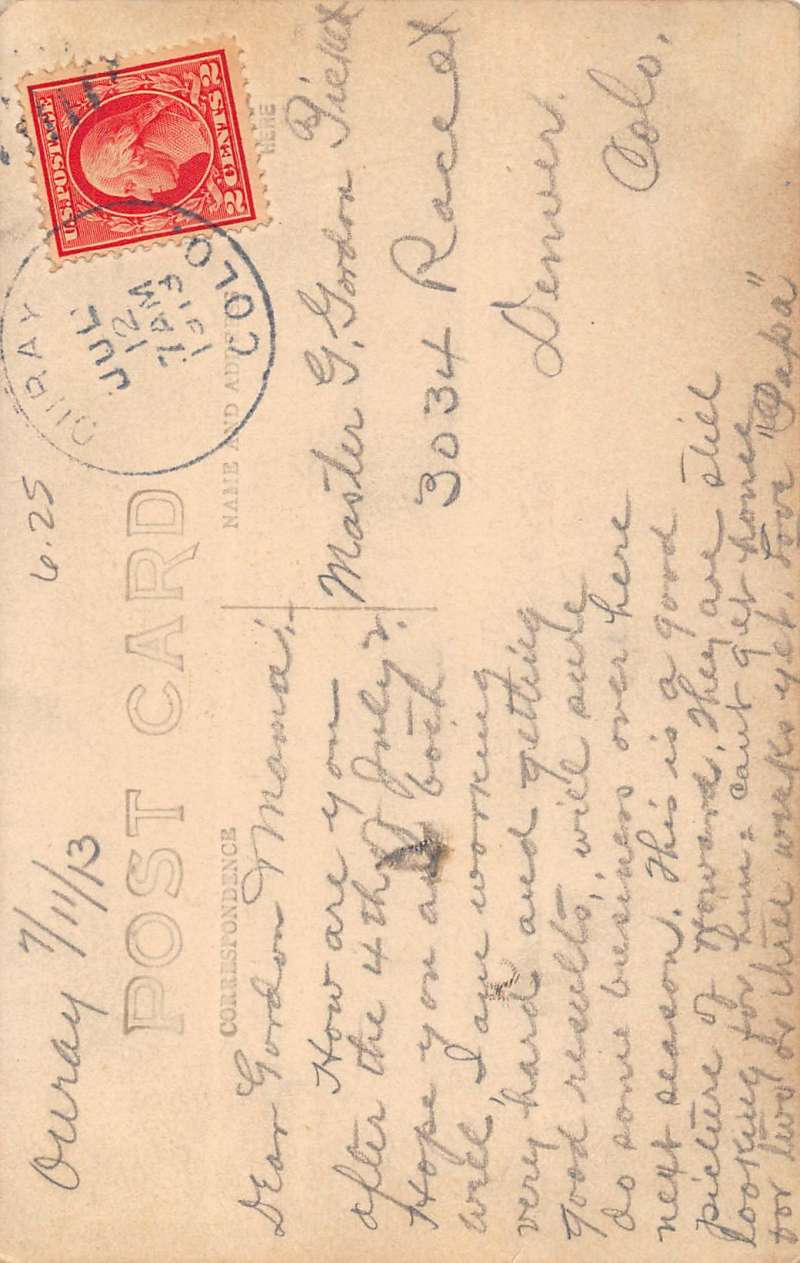 Ouray 7/11/13
6.25
POST CARD
CORRESPONDENCE
NAME AND ADDRESS
HERE
U.S. POSTAGE
2 CENTS 2
OURAY COLO.
JUL
12
7 AM
1913
Dear Gordon & Mama:-
How are you
after the 4th of July?
Hope you are both
well, I am working
very hard and getting
good results, will sure
do some business over here
next season. This is a good
picture of Howard. They are still
looking for him. can't get home
for two or three weeks yet. Love "Papa"
Master G. Gordon
3034 Race St
Denver.
Colo.